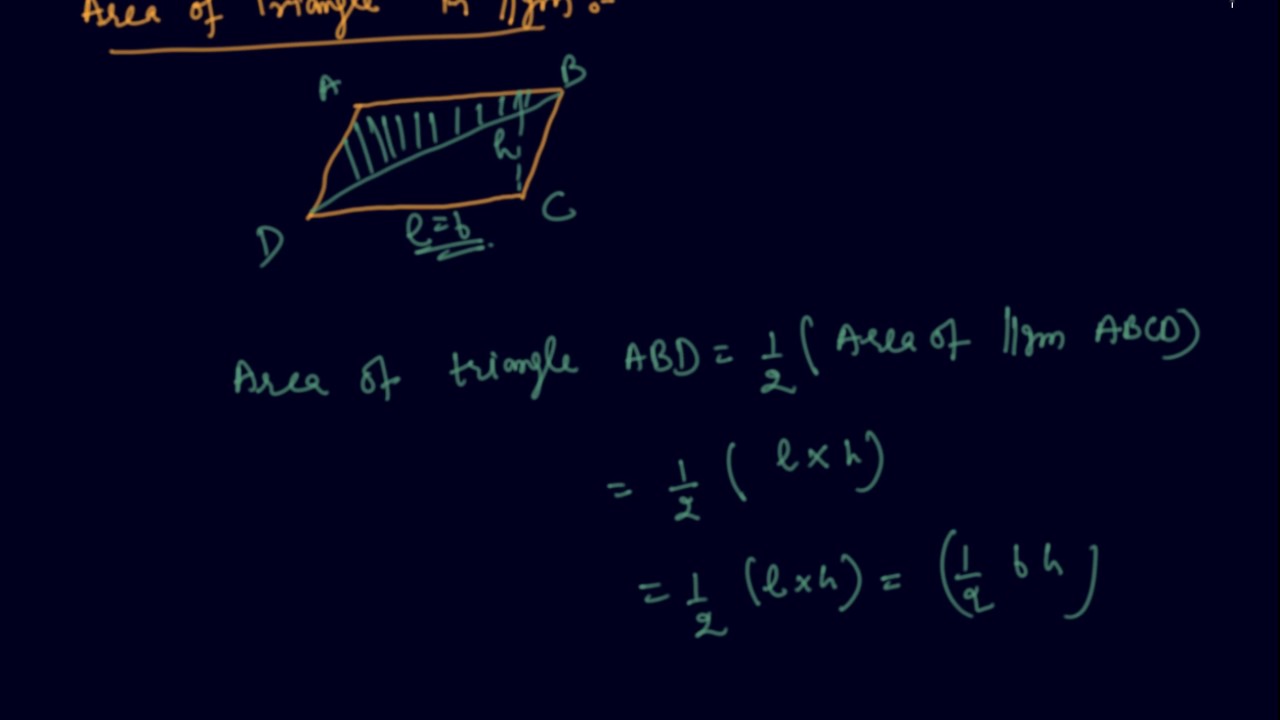 Area of Triangle in ||gm :-
A
B
h
D
l = b
C
Area of triangle ABD = 1/2 ( Area of ||gm ABCD)
= 1/2 ( l x h)
= 1/2 (l x h) = (1/2 b h)